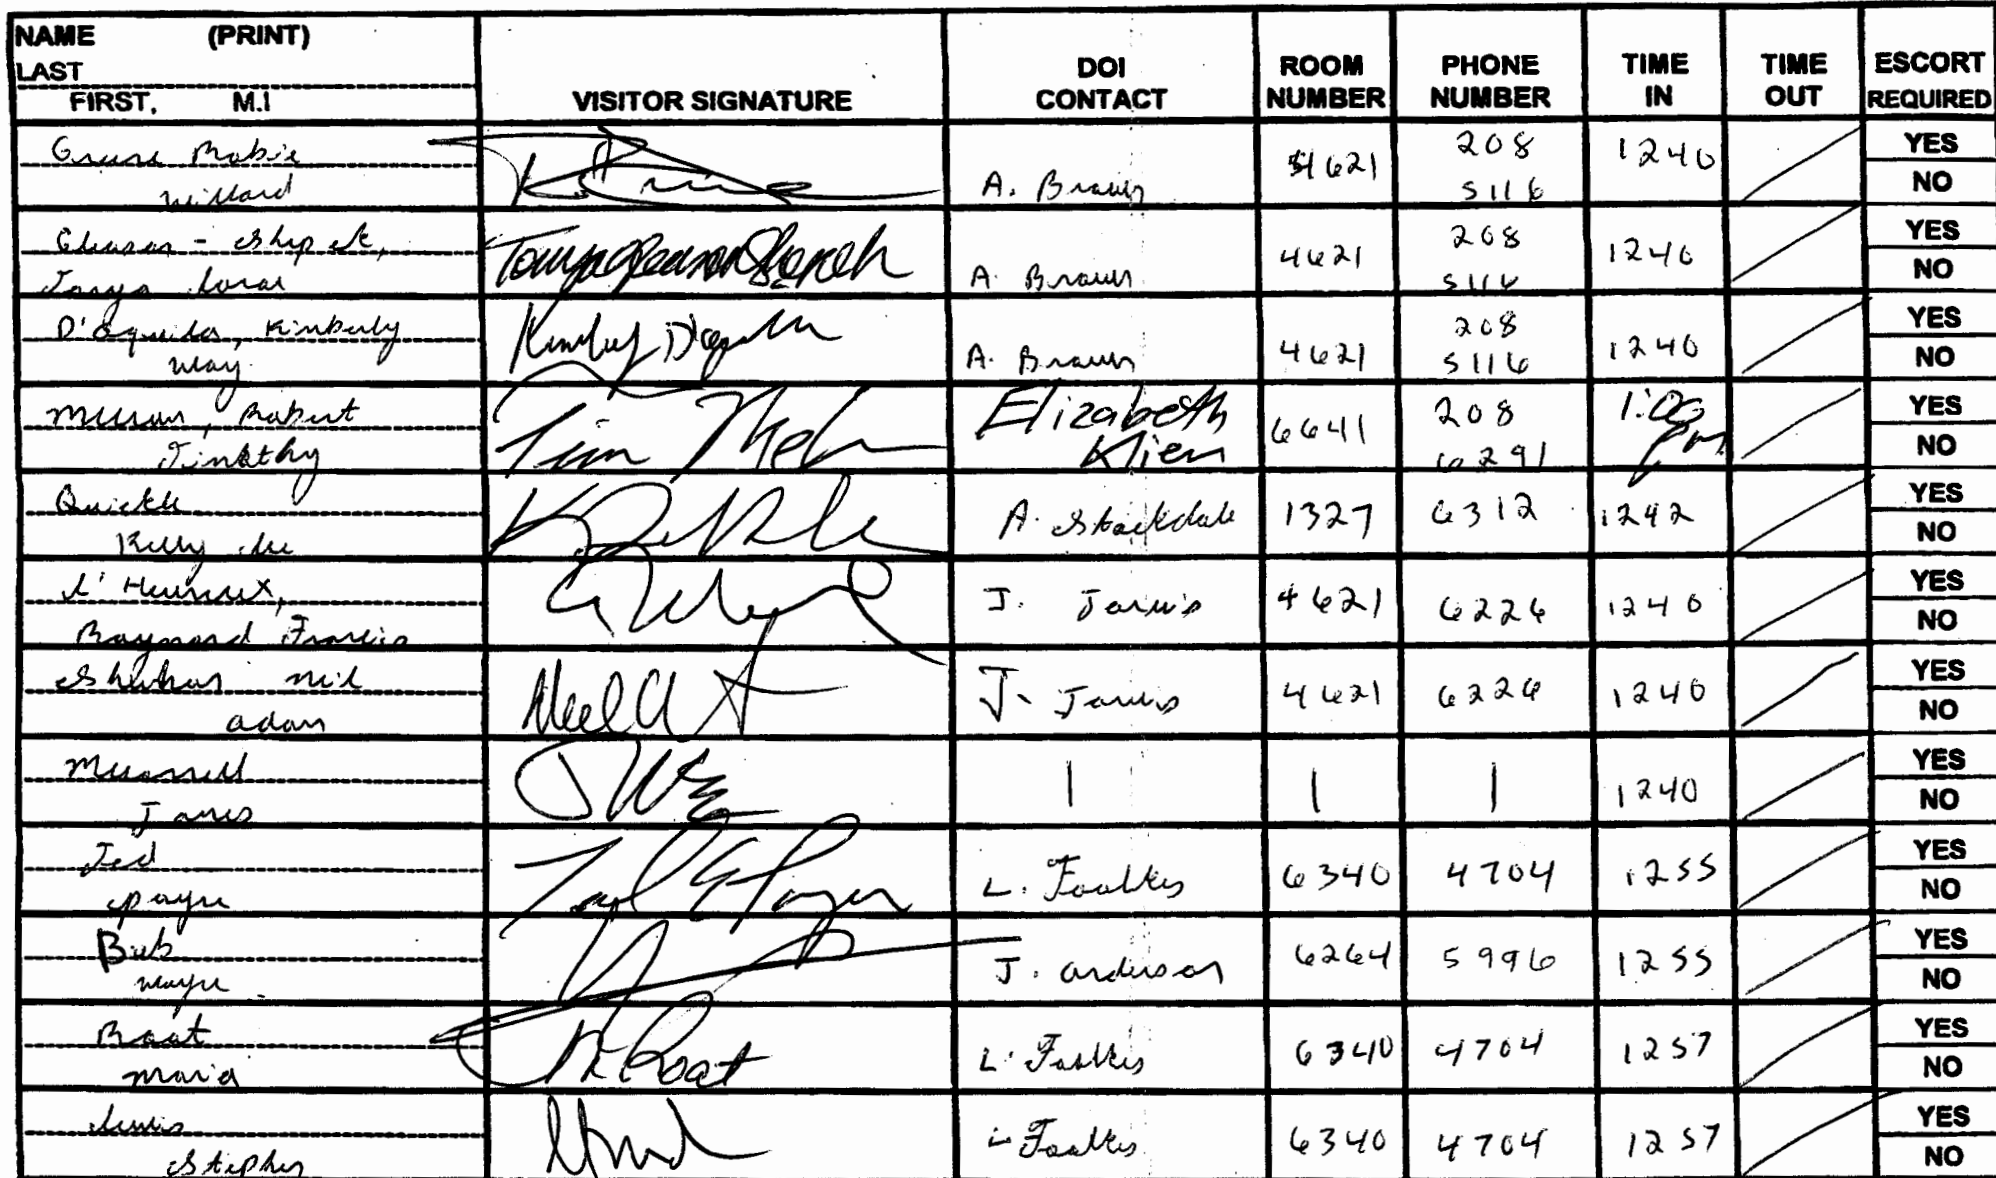 NAME (PRINT)
LAST
FIRST, M.I
VISITOR SIGNATURE
DOI CONTACT
ROOM NUMBER
PHONE NUMBER
TIME IN
TIME OUT
ESCORT REQUIRED
Willard
A. Brown
4621
208
5116
1240
YES
NO
Tanya
A. Brown
4621
208
5116
1240
YES
NO
D'Aquila, Kimberly
May
A. Brown
4621
208
5116
1240
YES
NO
Robert
Timothy
Tim
Elizabeth
Klien
6641
208
6291
1:00
pm
YES
NO
Kelly
A. Stockdale
1327
6312
1242
YES
NO
Raymond Francis
J. Jarvis
4621
6226
1240
YES
NO
adam
J. Jarvis
4621
6226
1240
YES
NO
James
|
|
|
1240
YES
NO
Ted
payne
L. Foulkes
6340
4704
1255
YES
NO
Bub
wayne
J. anderson
6264
5996
1255
YES
NO
Roat
maria
Roat
L. Foulkes
6340
4704
1257
YES
NO
Lewis
Stephen
L Foulkes
6340
4704
1257
YES
NO